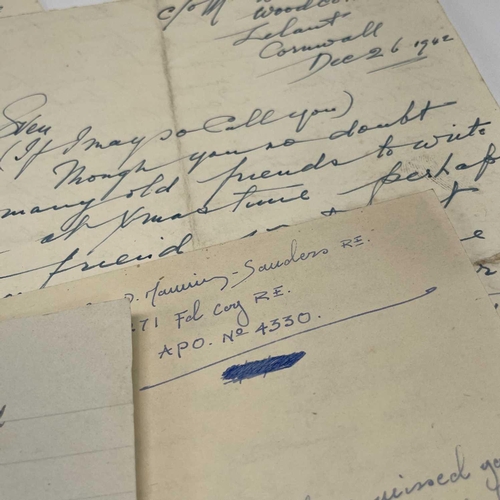 c/o M
Woodco
Lelant
Cornwall
Dec 26 1942
(If I may so call you)
Though you no doubt
many old friends to write
at Xmas time perhap
friend
Manning-Sanders RE.
71 Fd Coy R.E.
APO. No 4330.
missed yo